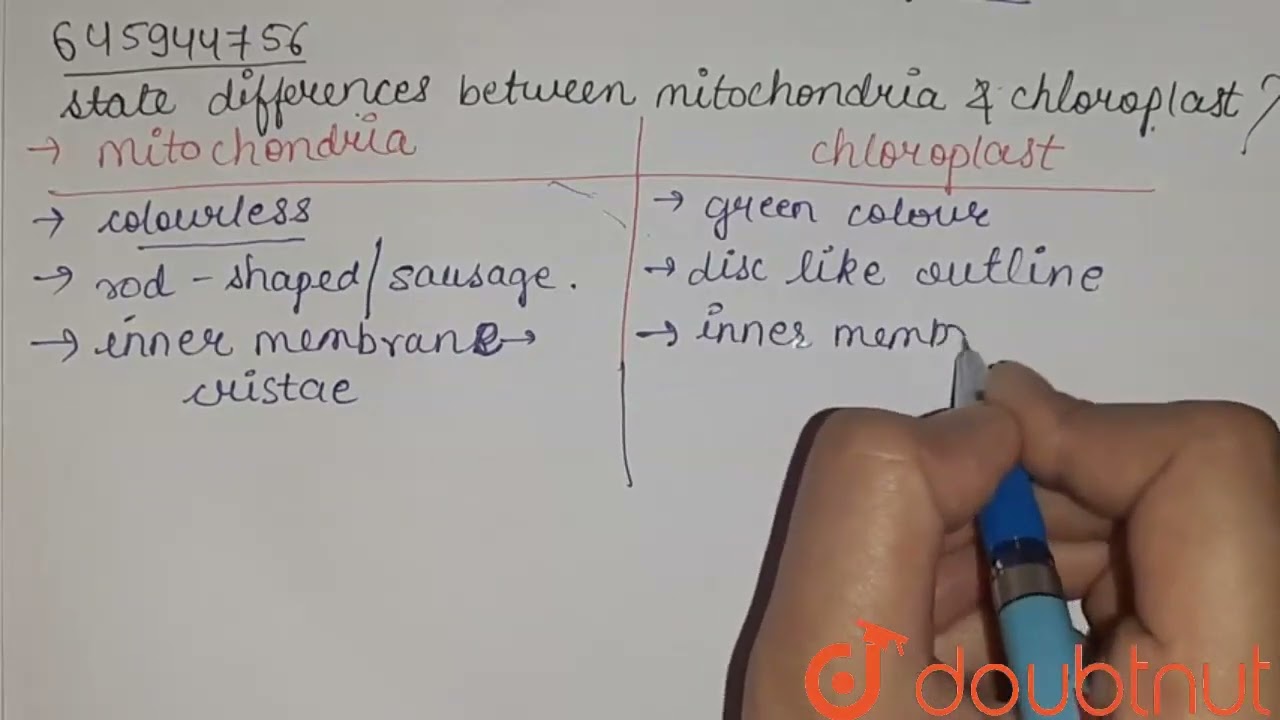 645944756
state differences between mitochondria & chloroplast?
→ mitochondria chloroplast
→ colourless → green colour
→ rod - shaped/sausage. → disc like outline
→ inner membrane→ → inner memb
cristae
doubtnut